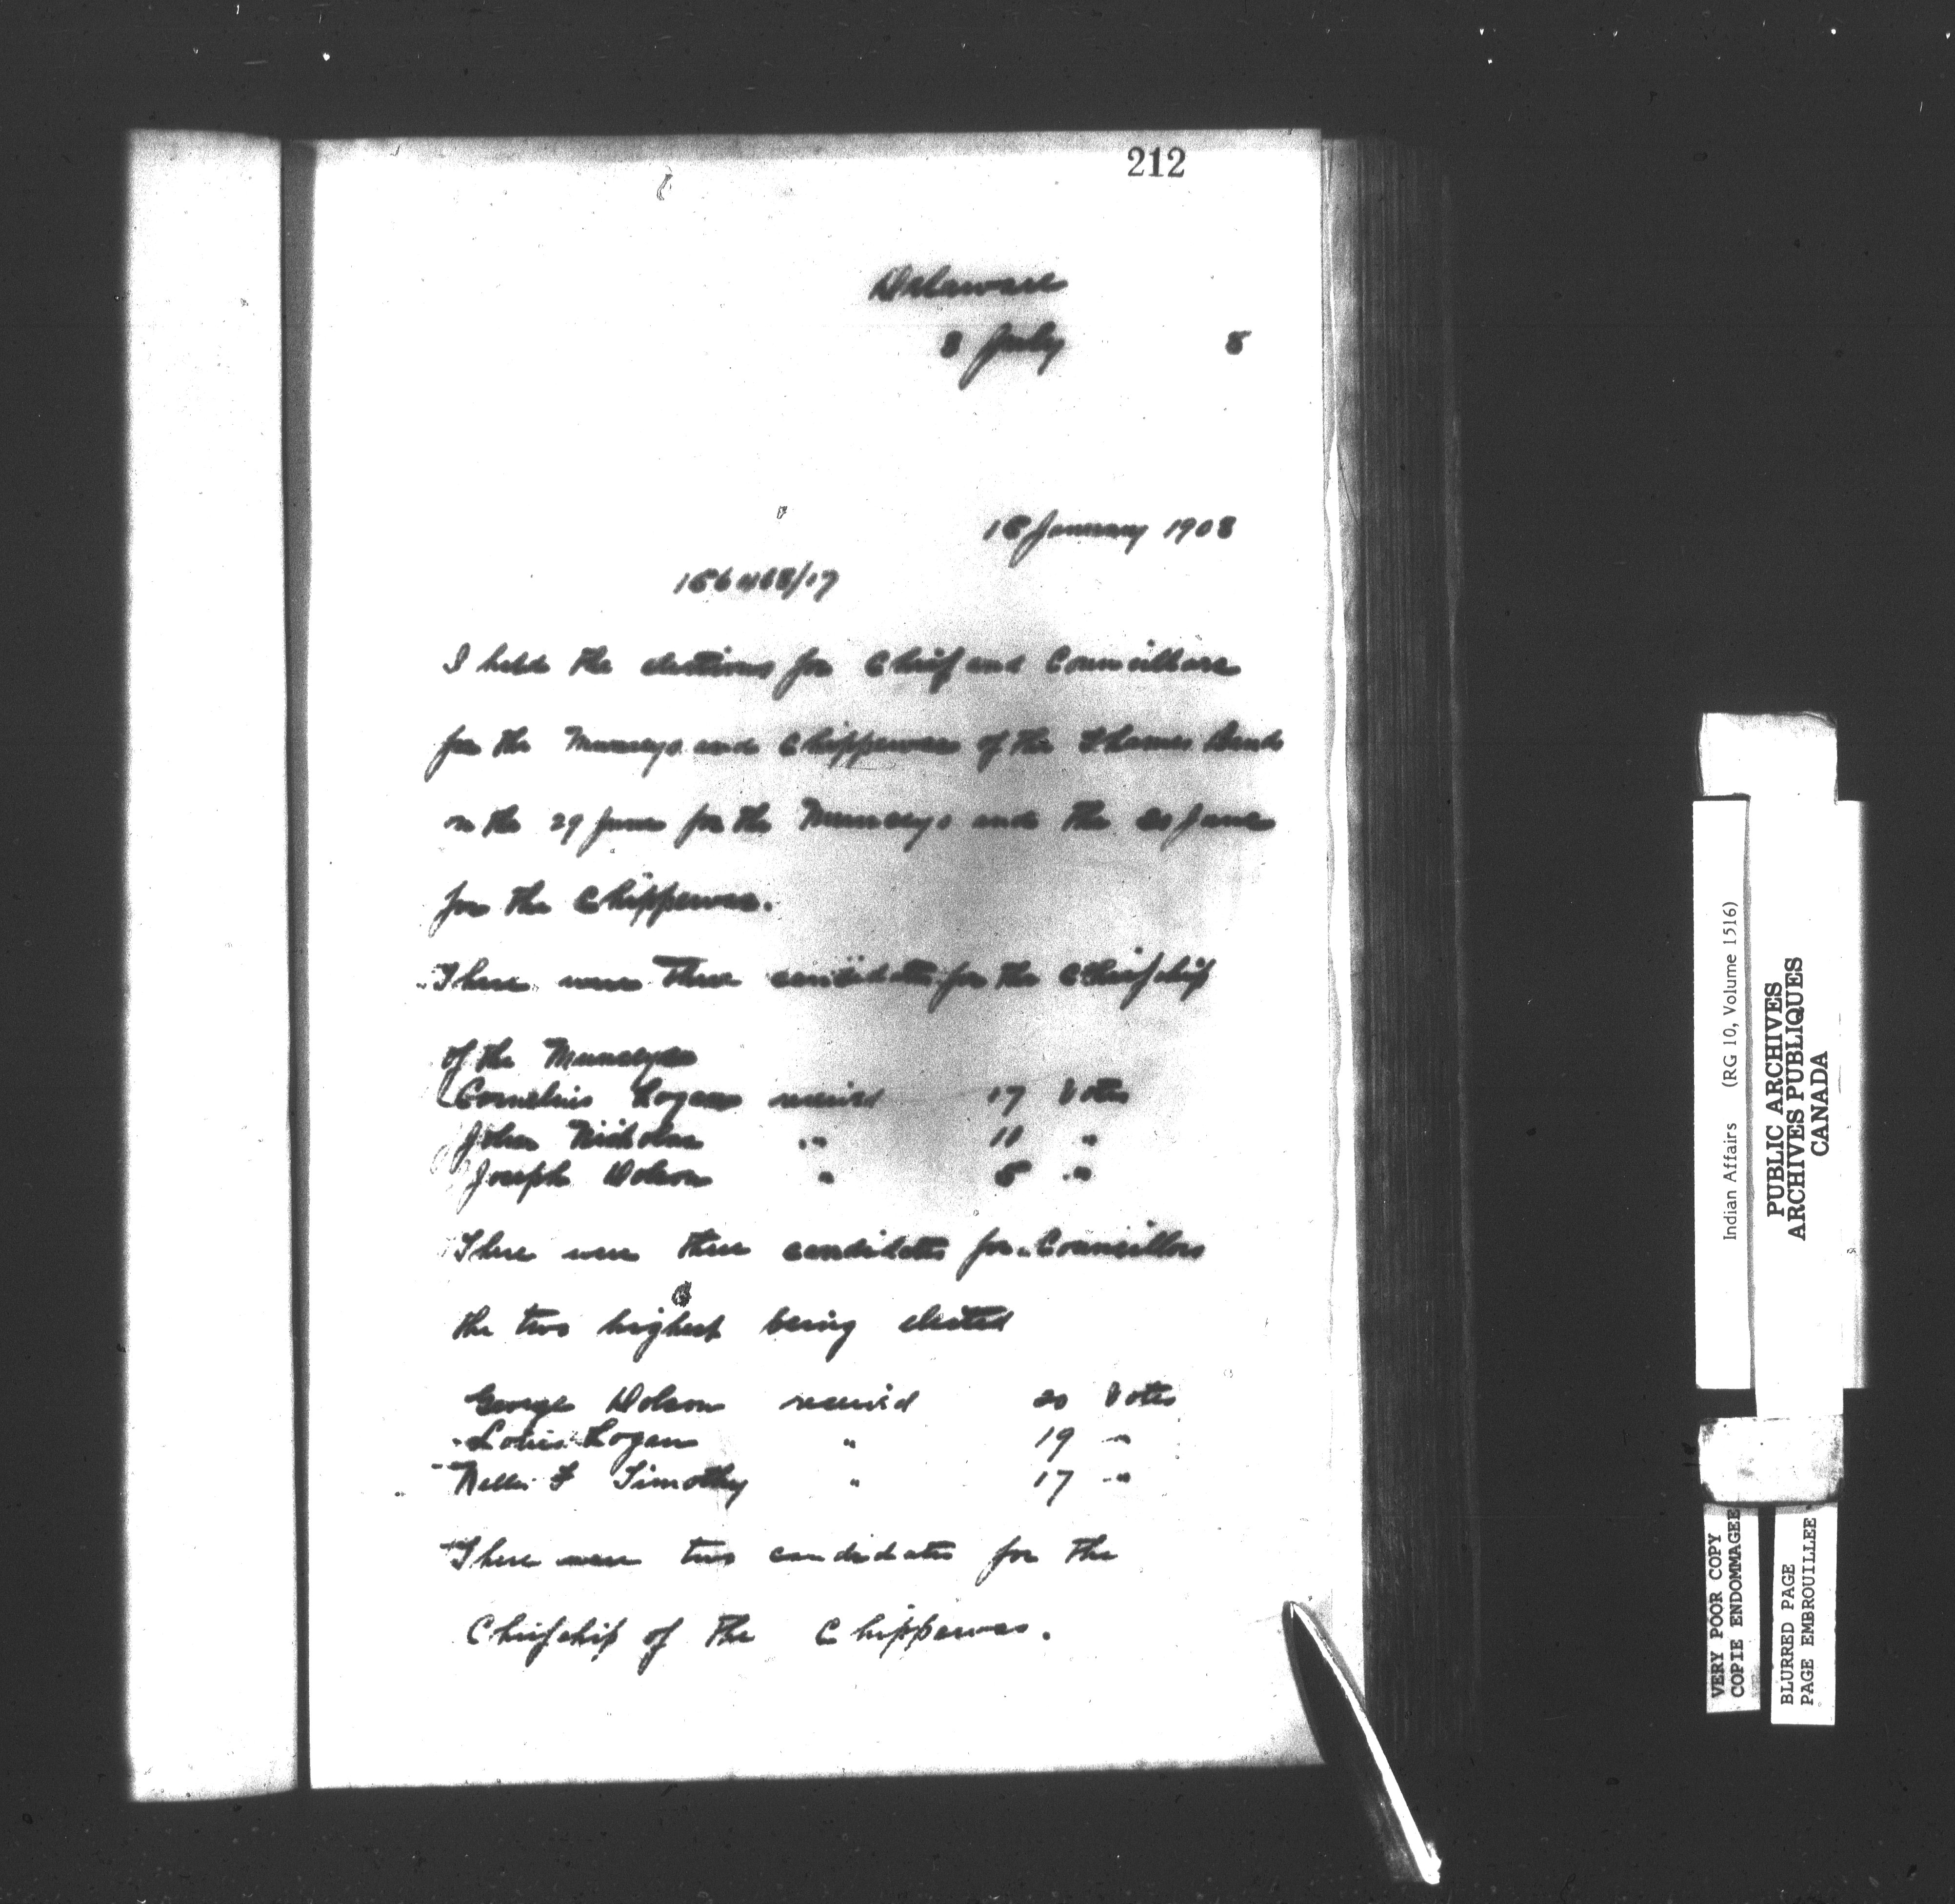 212
Delaware
8 July 8
18 January 1908
I held the elections for Chief and Councillors
for the Munseys and Chippewas of the Thames Bands
on the 29 June for the Munseys and the June
for the Chippewas.
There were three candidates for the Chiefship
of the Munseys
Cornelius Logan received 17 Votes
John Nicholas " "
Joseph Dolson " "
There were three candidates for Councillors
the two highest being elected
George Dolson received 20 Votes
Louis Logan " 19 "
Nellis F Timothy " 17 "
There were two candidates for the
Chiefship of the Chippewas.
Indian Affairs (RG 10, Volume 1516)
PUBLIC ARCHIVES
ARCHIVES PUBLIQUES
CANADA
VERY POOR COPY
COPIE ENDOMMAGEE
BLURRED PAGE
PAGE EMBROUILLEE